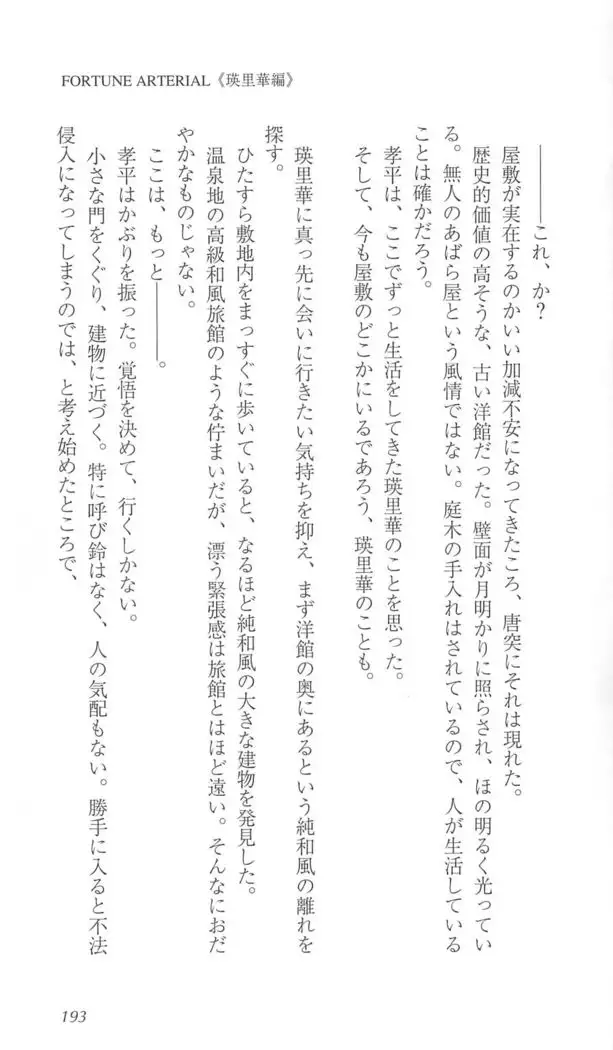 FORTUNE ARTERIAL《瑛里華編》
――――これ、か?
屋敷が実在するのかいい加減不安になってきたころ、唐突にそれは現れた。
歴史的価値の高そうな、古い洋館だった。壁面が月明かりに照らされ、ほの明るく光ってい
る。無人のあばら屋という風情ではない。庭木の手入れはされているので、人が生活している
ことは確かだろう。
孝平は、ここでずっと生活をしてきた瑛里華のことを思った。
そして、今も屋敷のどこかにいるであろう、瑛里華のことも。
瑛里華に真っ先に会いに行きたい気持ちを抑え、まず洋館の奥にあるという純和風の離れを
探す。
ひたすら敷地内をまっすぐに歩いていると、なるほど純和風の大きな建物を発見した。
温泉地の高級和風旅館のような佇まいだが、漂う緊張感は旅館とはほど遠い。そんなにおだ
やかなものじゃない。
ここは、もっと――――。
孝平はかぶりを振った。覚悟を決めて、行くしかない。
小さな門をくぐり、建物に近づく。特に呼び鈴はなく、人の気配もない。勝手に入ると不法
侵入になってしまうのでは、と考え始めたところで、
193